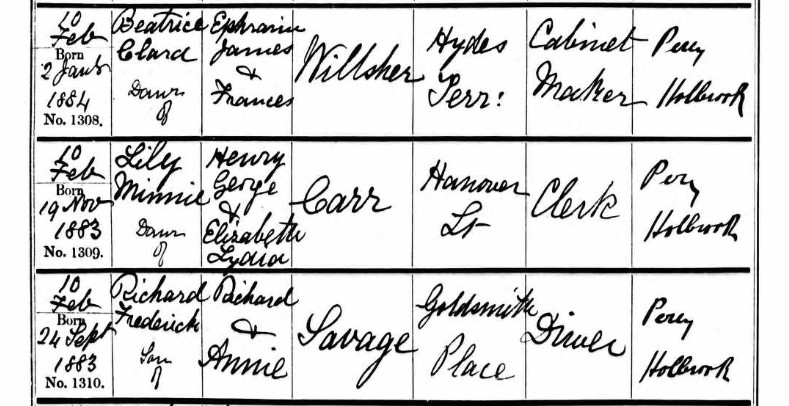 10 Feb Born 2 Jany 1884 No. 1308.
Beatrice Clara Daur of
Ephraim James & Frances
Willsher
Hydes Terr:
Cabinet Maker
Percy Holbrook
10 Feb Born 19 Nov 1883 No. 1309.
Lily Minnie Daur of
Henry George & Elizabeth Lydia
Carr
Hanover St
Clerk
Percy Holbrook
10 Feb Born 24 Sept 1883 No. 1310.
Richard Frederick Son of
Richard & Annie
Savage
Goldsmith Place
Percy Holbrook